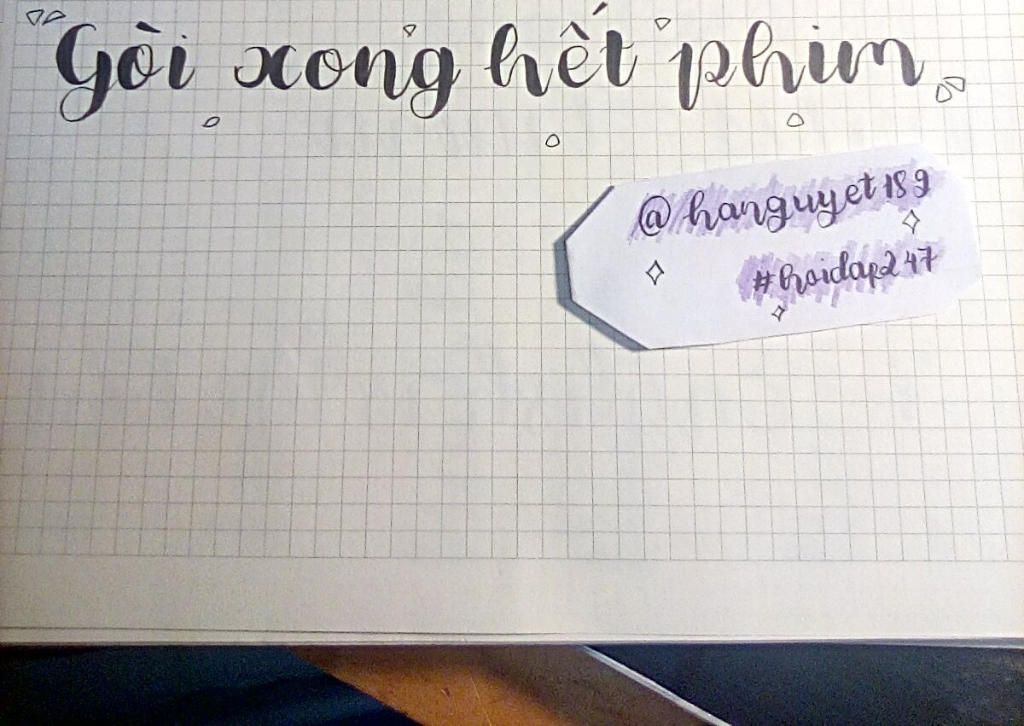 "Gòi xong hết phim"
@hanguyet189
#hoidap247